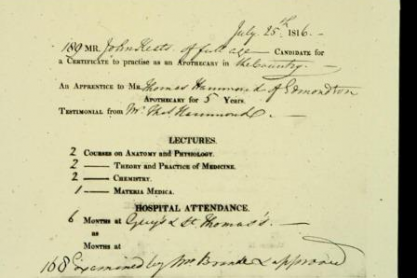 July 25th 1816.
189 MR. John Keats of full age — CANDIDATE for
a CERTIFICATE to practise as an APOTHECARY in the Country. —
An APPRENTICE to MR. Thomas Hammond of Edmonton
APOTHECARY for 5 YEARS.
TESTIMONIAL from Mr. Thos Hammond. —
LECTURES.
2 COURSES on ANATOMY and PHYSIOLOGY.
2 —— THEORY and PRACTICE of MEDICINE.
2 —— CHEMISTRY.
1 —— MATERIA MEDICA.
HOSPITAL ATTENDANCE.
6 MONTHS at Guy's & St Thomas's. —
as
MONTHS at
168 Examined by Mr Brande & approved